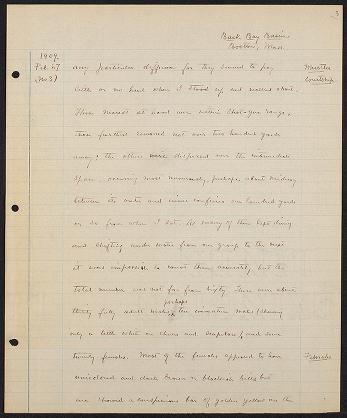 3
Back Bay Basin
Boston, Mass.
1909
Feb. 27
(No 3)
any particular difference for they seemed to pay
little or no heed when I stood up and walked about.
Whistler
Courtship
Those nearest at hand were within shot-gun range,
those furthest removed not over two hundred yards
away; the others were dispersed over the intermediate
space, occurring most numerously, perhaps, about midway
between its outer and inner confines one hundred yards
or so from where I sat. As many of them kept diving
and shifting under water from one group to the next
it was impossible to count them accurately but the
total number was not far from sixty. There were about
perhaps
thirty fully adult males, the immature males (showing
only a little white on cheeks and scapulars) and some
twenty females. Most of the females appeared to have
Females
unicolored and dark brown or blackish bills but
one showed a conspicuous bar of golden yellow on the